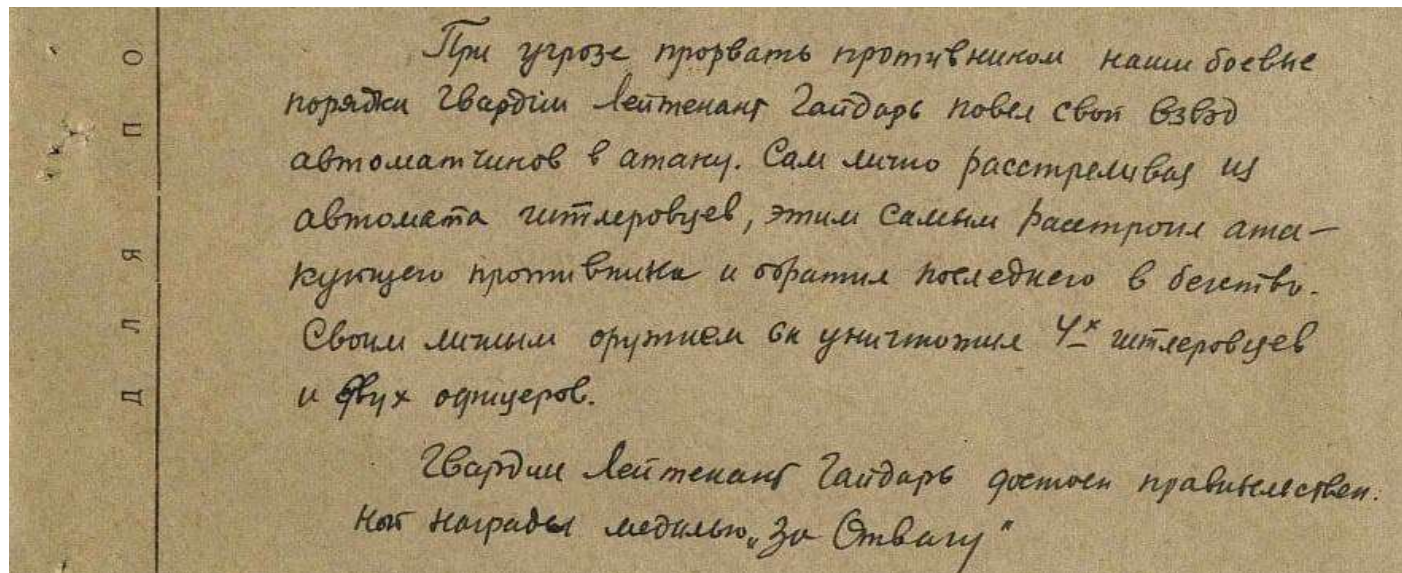 При угрозе прорвать противником наши боевые
порядки гвардии лейтенант Гайдарь повел свой взвод
автоматчиков в атаку. Сам лично расстреливая из
автомата гитлеровцев, этим самым расстроил ата-
кующего противника и обратил последнего в бегство.
Своим личным оружием он уничтожил 4х гитлеровцев
и двух офицеров.
Гвардии лейтенант Гайдарь достоен правительствен.
ной награды медалью „За Отвагу"
ДЛЯ ПО